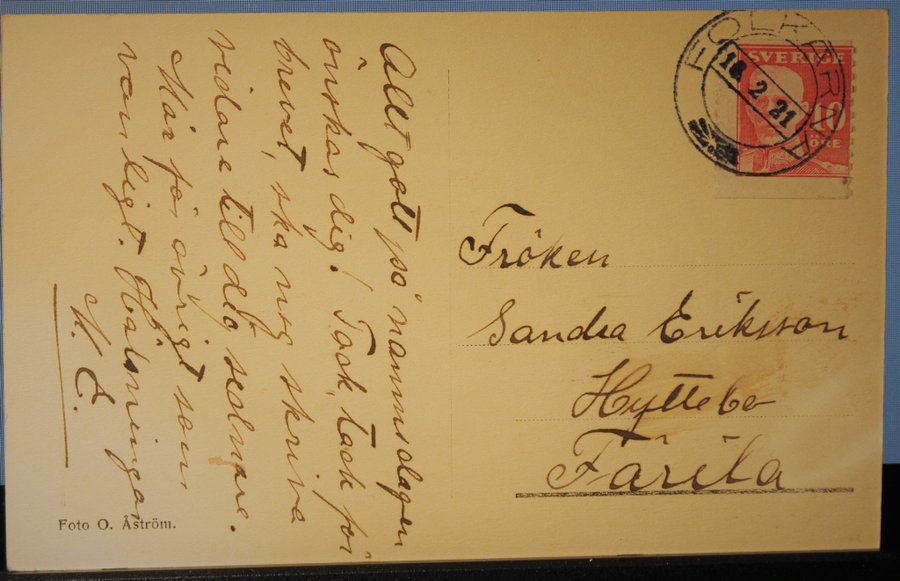 Allt gott på namnsdagen
önskas dig! Tack, tack för
brevet, ska nog skriva
vidare till dig sednare.
Mår för övrigt som
vanligt. Hälsningar
M. E.
Foto O. Åström.
FOLKÄRNA
18 2 21
SVERIGE
10
ÖRE
Fröken
Sandra Eriksson
Hyttebo
Färila